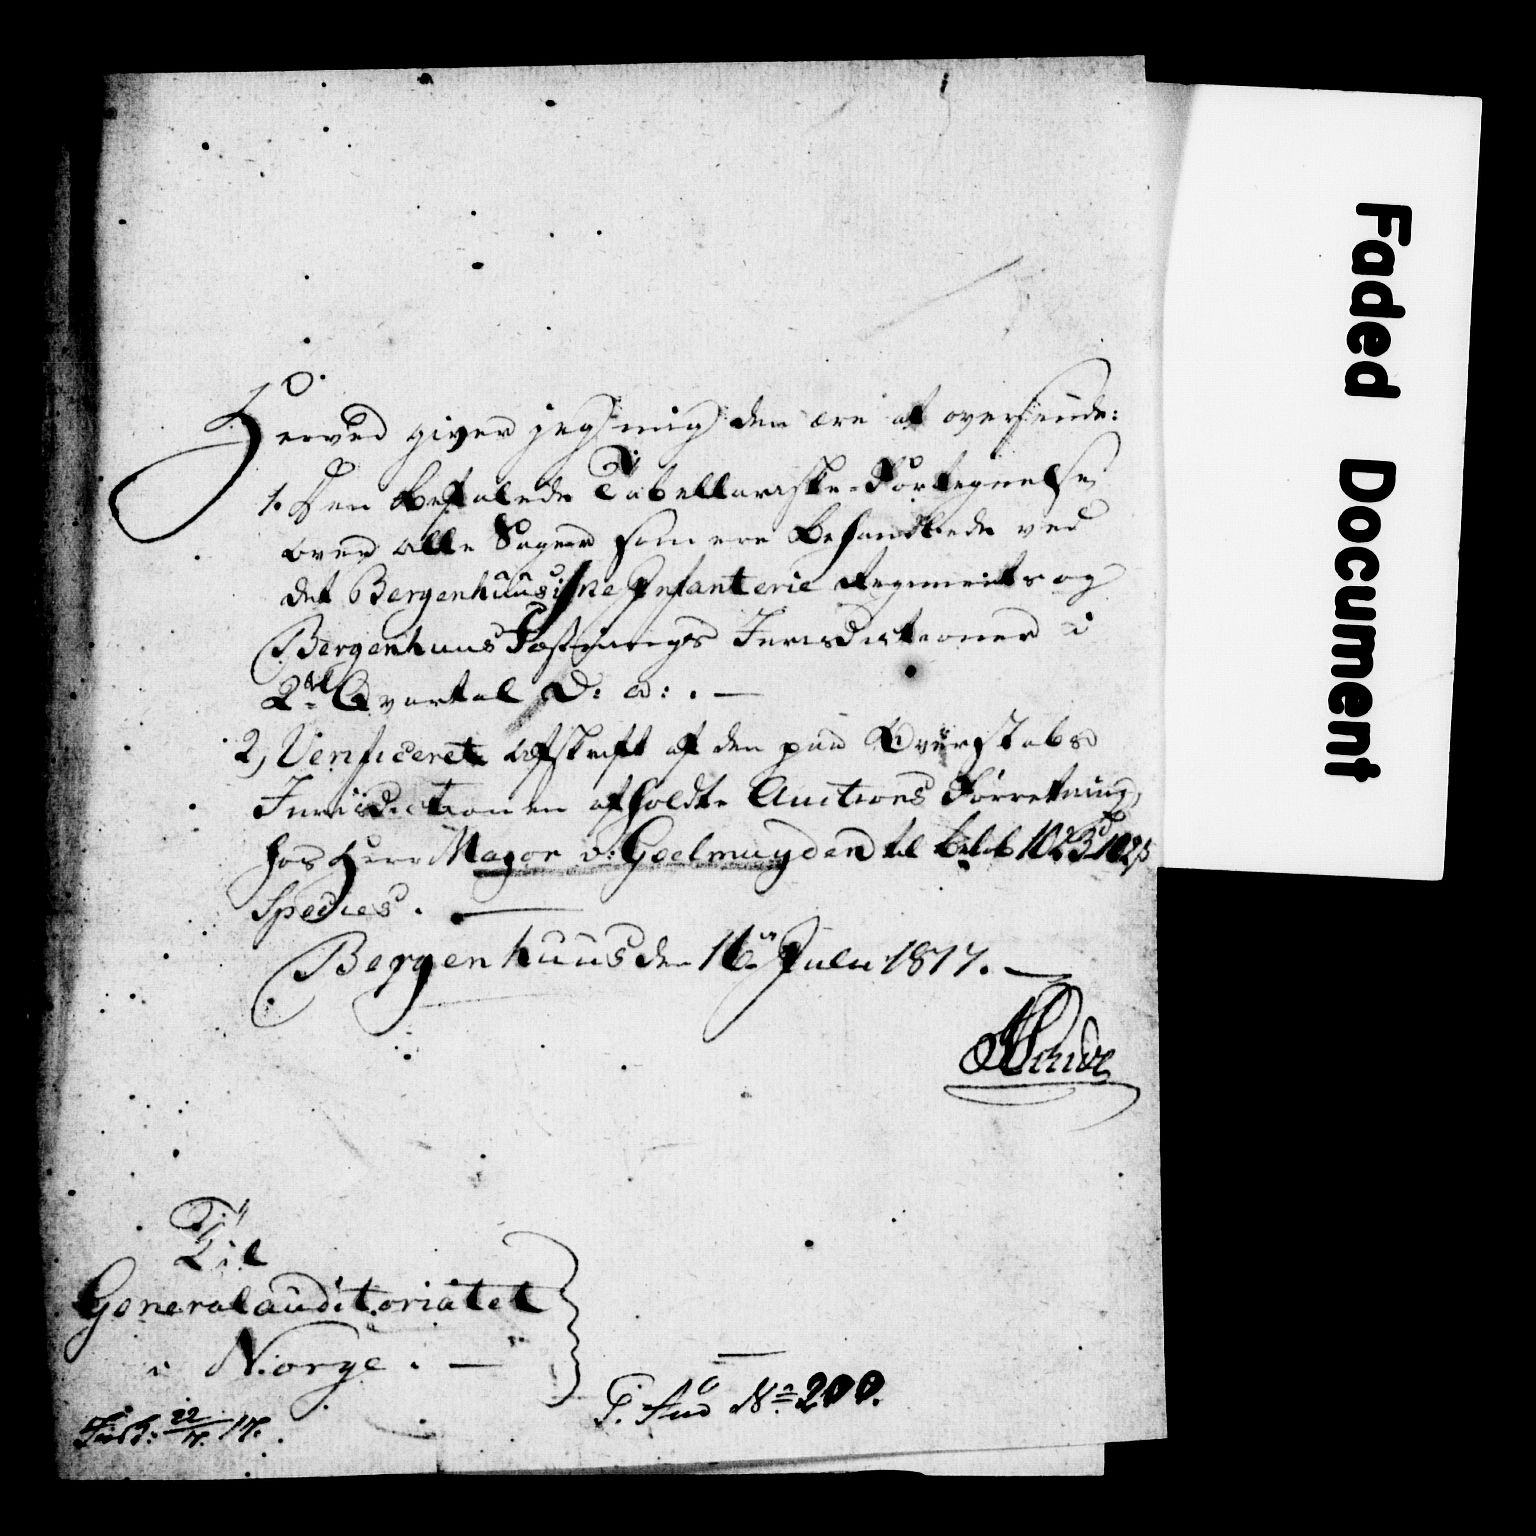 Herved giver jeg mig den ære at oversende:
1. Den befalede Tabellariske Fortegnelse
over alle Sager som ere behandlede ved
det Bergenhuusiske Infanterie Regiments og
Bergenhuus Fæstnings Jurisdictioner i
2det Qvartal d: a: . —
2, Verificeret Afskrift af den paa Overstabs
Jurisdictionen afholdte Auctions Forretning
hos Herr Major v: Geelmuyden til beløb
Species. —
Bergenhuus den 16n Julii 1817. —
Til
Generalauditoriatet
i Norge. —
P. Aud No 200.
Indk: 22/7. 17.
Faded Document